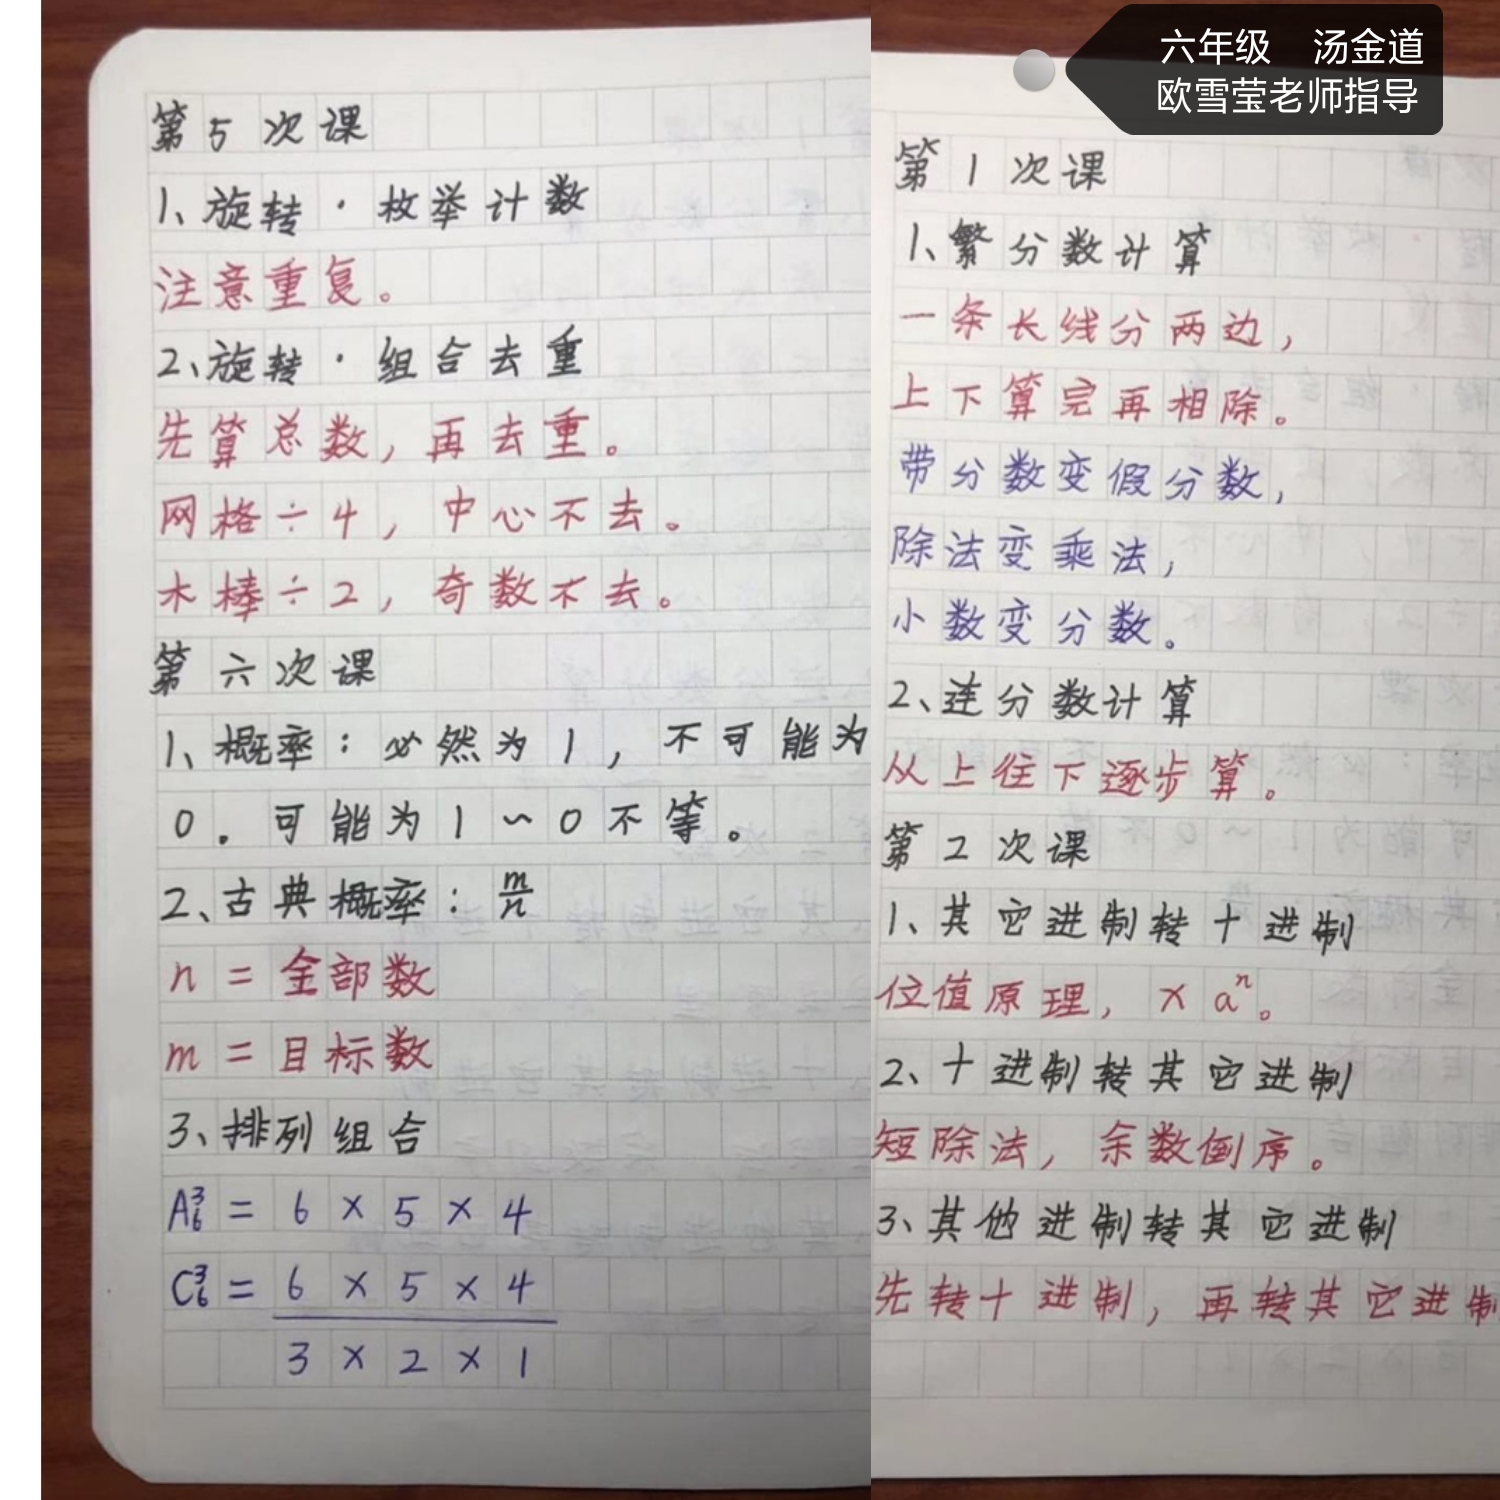 第5次课
1、旋转·枚举计数
注意重复。
2、旋转·组合去重
先算总数,再去重。
网格÷4,中心不去。
木棒÷2,奇数不去。
第六次课
1、概率:必然为1,不可能为
0.可能为1~0不等。
2、古典概率:m/n
n=全部数
m=目标数
3、排列组合
A₆³=6×5×4
C₆³=6×5×4
3×2×1
六年级 汤金道
欧雪莹老师指导
第1次课
1、繁分数计算
一条长线分两边,
上下算完再相除。
带分数变假分数,
除法变乘法,
小数变分数。
2、连分数计算
从上往下逐步算。
第2次课
1、其它进制转十进制
位值原理,×aⁿ。
2、十进制转其它进制
短除法,余数倒序。
3、其他进制转其它进制
先转十进制,再转其它进制